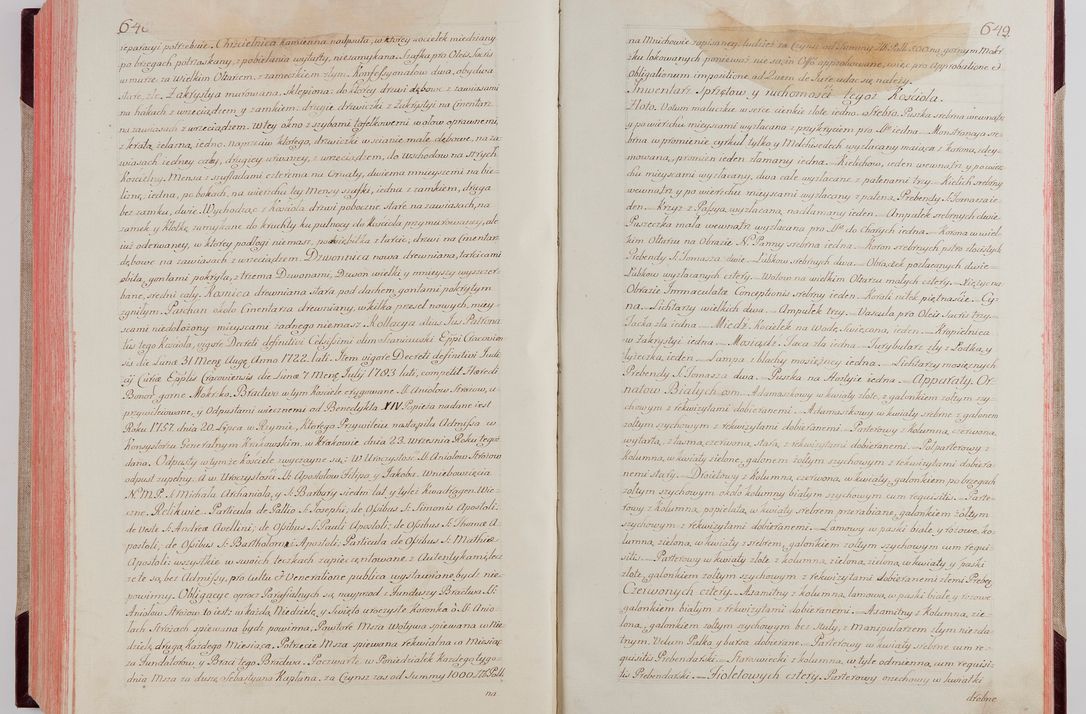 648
reparacyi potrzebuie. Chrzcielnica kamienna nadpsuta, w ktorey kociełek miedziany
po brzegach potrzaskany, z pobielania wytarty, niezamykana. Szafka pro Oleis Sacris
w murze za Wielkim Ołtarzem, z zameczkiem złym. Konfessyonałow dwa, obydwa
stare, złe. Zakrystya murowana, sklepiona: do ktorey drzwi dębowe z zawiasami
na hakach z wrzeciądzem y zamkiem: drugie drzwiczki z Zakrystyi na Cmentarz
na zawiasach z wrzeciądzem. W tey okno z szybami tafelkowemi w ołow oprawnemi,
z kratą żelazną, iedno, naprzeciw ktorego, drzwiczki w scianie małe, dębowe, na za-
wiasach iedney cały, drugiey urwaney, z wrzeciądzem, do Wschodow na Strych
Kościelny. Mensa z szufladami czterema na Ornaty, dwiema mnieyszemi na bie-
liznę, iedna, po bokach, na wierzchu tey Mensy szafki, iedna z zamkiem, druga
bez zamku, dwie. Wychodząc z Kościoła drzwi poboczne stare na zawiasach, na
zamek y Kłotkę zamykane do kruchty ku pułnocy do Kościoła przymurowaney, ale
iuż oderwaney, w ktorey podłogi niemasz, podsiębitka z tarcic, drzwi na Cmentarz
dębowe na zawiasach z wrzeciądzem. Dzwonnica nowa drewniana, tarcicami
obita, gontami pokryta, z trzema Dzwonami, Dzwon wielki y mnieyszy wyszczer-
bane, sredni cały. Kosnica drewniana stara pod dachem gontami pokrytym
zgniłym. Parchan około Cmentarza drewniany, w kilku przęseł nowych, miey-
scami niedołożony mieyscami żadnego niemasz. Kollacya alias Jus Patrona-
tus tego Kościoła, vigore Decreti definitivi Celsissimi olim Szaniawski Eppi Cracovien-
sis die Lunæ 31 Mensis Augg. Anno 1722. lati. Item vigore Decreti definitivi Judi-
cij Curiæ Epplis Cracoviensis die Lunæ 7 Mensis Julij 1783 lati, competit Hæredi
Bonor. gorne Mokrsko. Bractwo w tym Kościele erygowane SS. Aniołow Strożow, u-
przywileiowane, y Odpustami wiecznemi od Benedykta XIV Papieża nadane iest
Roku 1757. dnia 20. Lipca w Rzymie, Ktorego Przywileiu nastąpiła Admissa w
Konsystorzu Generalnym Krakowskim, w Krakowie dnia 23. Września Roku tegoż
dana. Odpusty w tymże Kościele zwyczayne są: W Uroczystość SS. Aniołow Strożow
odpust zupełny. A w Uroczystości SS. Apostołow Filipa y Jakoba. Wniebowzięcia
N. M. P. S. Michała Archanioła, y S. Barbary siedm lat, y tyleż Kwadragen. Wie-
czne. Relikwie. Particula de Pallio S. Josephi, de Ossibus S. Simonis Apostoli:
de Veste S. Andreæ Avellini; de Ossibus S. Pauli Apostoli; de Ossibus S. Thomæ A-
postoli; de Ossibus S. Bartholomei Apostoli; Particula de Ossibus S. Mathiæ
Apostoli: wszystkie w swoich teczkach zapieczętowane z Autentykami, lecz
że te są bez Admissy, pro cultu et Veneratione publica wystawione bydz nie-
powinny. Obligacye oprocz Parafialnych są, nayprzod z Funduszu Bractwa SS.
Aniołow Strożow to iest: w każdą Niedzielę y Święto uroczyste koronka o SS. Anio-
łach Strożach spiewana bydz powinna. Powtore Msza Wotywa spiewana w Nie-
dzielę drugą każdego Miesiąca. Potrzecie Msza spiewana rekwialna co Miesiąc
za Fundatorow, y Braci tego Bractwa. Poczwarte w Poniedziałek każdego tygo-
dnia Msza za duszę Sebastyana Kaplana. za Czynsz zaś od Summy 1000 Zł. Poll.
na
649
na Mnichowie zapisaney, tudzież za Czynsz od Summy Zł. Poll. 500 na gornym Mokr-
sku lokowanych ponieważ nie są in Offo approbowane, więc pro Approbatione et
Obligationum impositione ad Quem de Jure udac się należy.
Inwentarz Sprzętow y ruchomości tegoż Kościoła.
Złoto. Wotum malutkie w serce cienkie złote iedno. Srebro. Puszka srebrna wewnątrz
y powierzchu mieyscami wyzłacana z przykryciem pro SSmo iedna. — Monstrancya sre-
brna w promienie, cyrkuł tylko y Melchisedech wyzłacany maiąca z Koroną, zdey-
mowaną, promien ieden złamany iedna. — Kielichow, ieden wewnątrz y po wierz-
chu mieyscami wyzłacany, dwa całe wyzłacane z patenami trzy. — Kielich srebrny
wewnątrz y po wierzchu mieyscami wyzłacany z pateną Prebendy S. Tomasza ie-
den. — Krzyż z Passyą wyzłacaną, nadłamany ieden. — Ampułek srebrnych dwie.
Puszeczka mała wewnątrz wyzłacana pro SSmo do Chorych iedna. — Korona w wiel-
kim Ołtarzu na Obrazie N. Panny srebrna iedna. — Koron srebrnych pstro złocistych
Prebendy S. Tomasza dwie. — Lubkow srebrnych dwa. — Obrączek pozłacanych dwie. —
Lubkow wyzłacanych cztery. — Wotow na wielkim Ołtarzu małych cztery. — Xiężyc na
Obrazie Immaculatæ Conceptionis srebrny ieden. — Korali nitek piętnaście. — Cy-
na. Lichtarzy wielkich dwa. — Ampułek trzy. — Vascula pro Oleis Sacris trzy.
Tacka zła iedna. — Miedź. Kociełek na Wodę Swięconą, ieden. — Kropielnica
w Zakrystyi iedna. — Mosiądz. Taca zła iedna. — Turybularz zły z Łodką, y
łyżeczką, ieden. — Lampa z blachy mosiężney iedna. — Lichtarzy mosiężnych
Prebendy S. Tomasza dwa. — Puszka na Hostye iedna. — Apparaty. Or-
natow Białych osm. — Adamaszkowy w kwiaty złote, z galonkiem żołtym szy-
chowym z rekwizytami dobieranemi. — Adamaszkowy w kwiaty srebrne z galonem
żołtym szychowym z rekwizytami dobieranemi. — Parterowy z Kolumną, czerwoną,
wytartą, z tasmą czerwoną, starą, z rekwizytami dobieranemi. — Połparterowy z
Kolumną, w kwiaty zielone, galonem żołtym szychowym z rekwizytami dobiera-
nemi stary. — Drojetowy z Kolumną, czerwoną, w kwiaty, galonkiem po brzegach
żołtym szychowym około kolumny białym szychowym cum requisitis. — Parte-
rowy z kolumną, popielatą, w kwiaty srebrem przerabiane, galonkiem żołtym
szychowym z rekwizytami dobieranemi. — Lamowy w paski białe, y rożowe, ko-
lumną, zieloną, w kwiaty z srebrem, galonkiem żołtym szychowym cum requi-
sitis. — Parterowy w kwiaty złote z kolumną, zieloną, zieloną, w kwiaty y paski
złote, galonkiem żołtym szychowym z rekwizytami dobieranemi złemi Preben.
Czerwonych cztery. — Axamitny z kolumną, lamową, w paski białe, y rożowe
galonkiem białym z rekwizytami dobieranemi. — Axamitny z kolumną, zie-
loną, galonkiem żołtym szychowym bez stuły, z Manipularzem złym niezda-
tnym. Velum Palka y bursa dobierane. — Parterowy w kwiaty srebrne cum re-
quisitis Prebendarski. — Staroswiecki z kolumną, w tyle odmienną, cum requisi-
tis Prebendarski. — Fioletowych cztery. Parterowy orzechowy w kwiatki
drobne